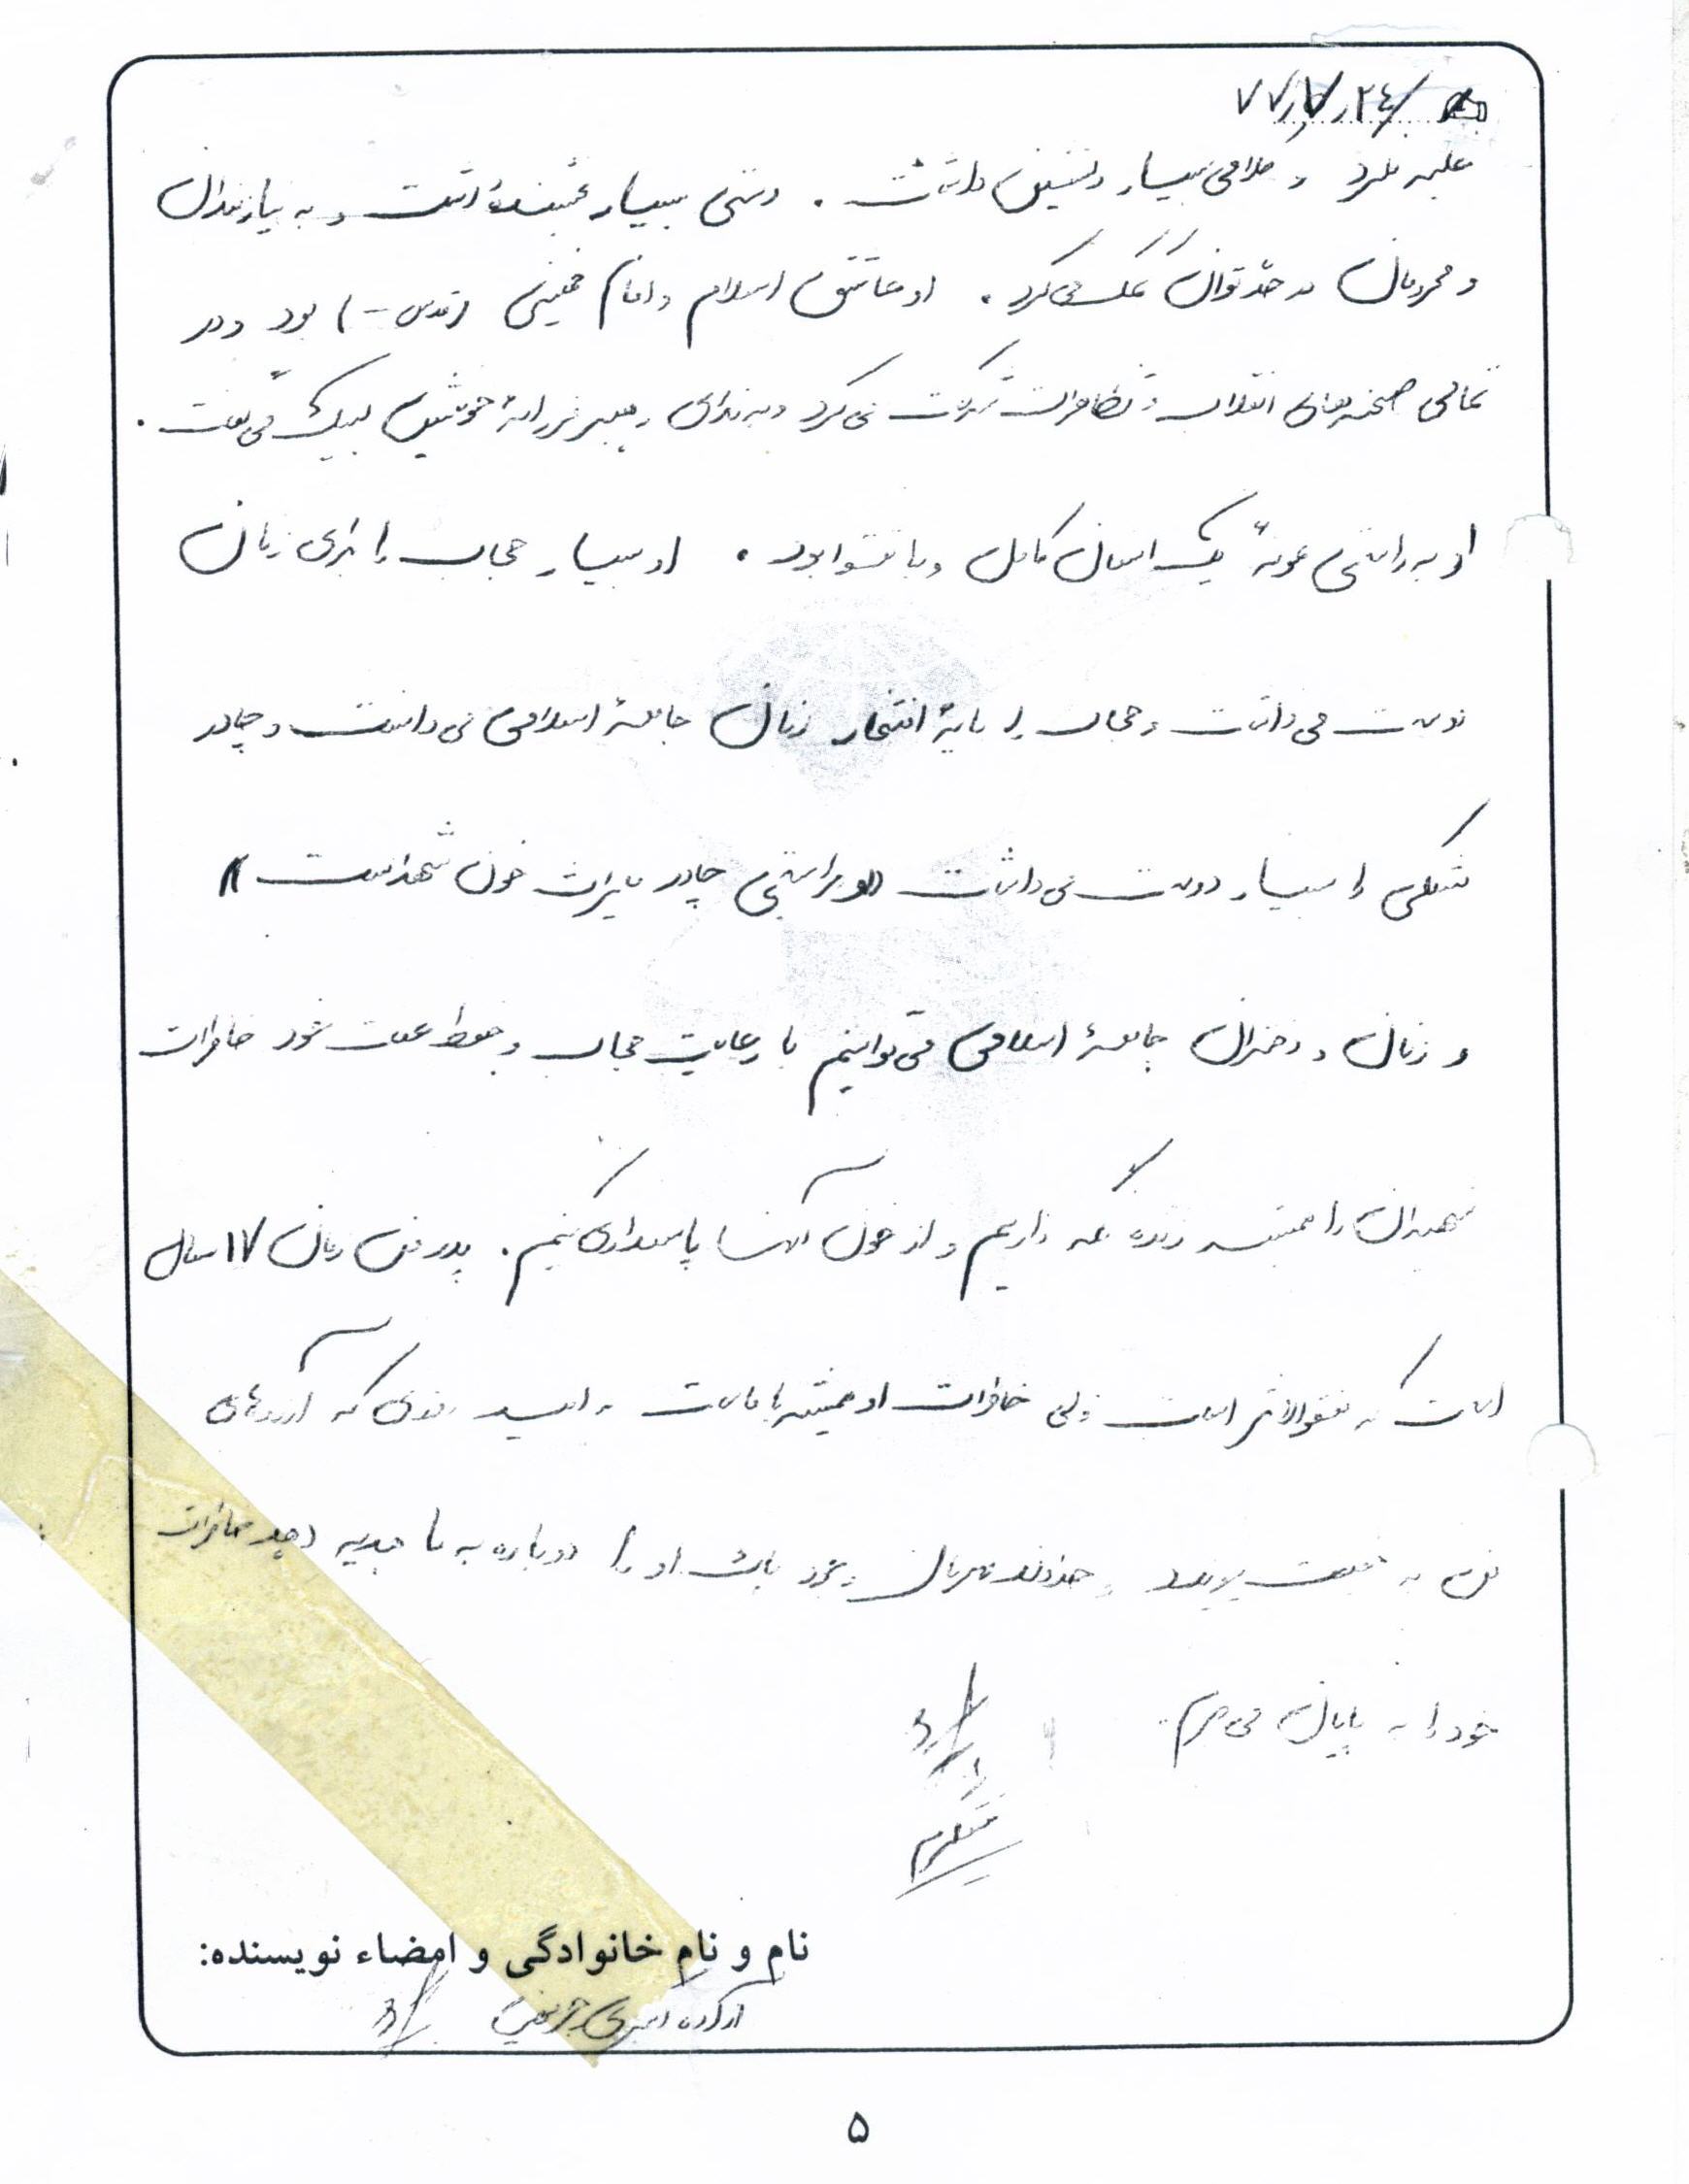 ۷۷/۷/۲۴
علیه نکرد و کلامی بسیار دلنشین داشت. دستی بسیار بخشنده داشت و به نیازمندان
و محرومان در حدّ توان کمک می‌کرد. او عاشق اسلام و امام خمینی (قدس) بود و در
تمامی صحنه‌های انقلاب و تظاهرات شرکت می‌کرد و به ندای رهبر فرزانهٔ خویش لبیک می‌گفت.
او به راستی نمونهٔ یک انسان کامل و با تقوا بود. او بسیار حجاب را برای زنان
دوست می‌داشت و حجاب را مایهٔ افتخار زنان جامعهٔ اسلامی می‌دانست و چادر
مشکی را بسیار دوست می‌داشت «و براستی چادر میراث خون شهداست»
و زنان و دختران جامعهٔ اسلامی می‌توانیم با رعایت حجاب و حفظ عفت خود خاطرات
شهیدان را همیشه زنده نگه داریم و از خون آنها پاسداری کنیم. پدر من الان ۱۷ سال
است که مفقودالاثر است ولی خاطرات او همیشه با ماست به امید روزی که آرزوهای
من به حقیقت بپیوندد و خداوند مهربان وجود پاک او را دوباره به ما هدیه دهد خاطرات
خود را به پایان می‌برم
متشکرم
نام و نام خانوادگی و امضاء نویسنده:
۵